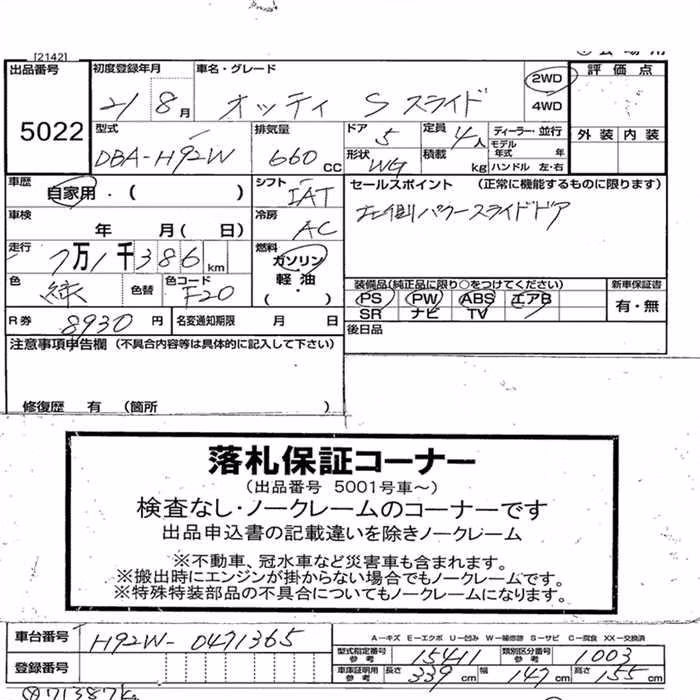 [2142]
出品番号 5022
初度登録年月 21 8月
車名・グレード オッティ Sスライド
2WD
4WD
評価点
外装 内装
型式 DBA-H92W
排気量 660cc
ドア 5
定員 4人
形状 WG
積載 kg
ディーラー・並行
モデル年式 年
ハンドル 左・右
車歴 自家用・( )
シフト IAT
セールスポイント (正常に機能するものに限ります)
左側パワースライドドア
車検 年 月( 日)
冷房 AC
走行 7万1千386km
燃料 ガソリン
軽油
・( )
色 緑 色替 色コード F20
装備品(純正品に限り○をつけてください)
新車保証書
PS PW ABS エアB
SR ナビ TV
有・無
R券 8930円 名変通知期限 月 日
後日品
注意事項申告欄 (不具合内容等は具体的に記入して下さい)
修復歴 有 (箇所 )
落札保証コーナー
(出品番号 5001号車~)
検査なし・ノークレームのコーナーです
出品申込書の記載違いを除きノークレーム
※不動車、冠水車など災害車も含まれます。
※搬出時にエンジンが掛からない場合でもノークレームです。
※特殊特装部品の不具合についてもノークレームになります。
車台番号 H92W-0471365
A-キズ E-エクボ U-凹み W-補修跡 S-サビ C-腐食 XX-交換済
型式指定番号 参考 15411 類別区分番号 参考 1003
登録番号
車庫証明用 参考 長さ 339cm 幅 147cm 高さ 155cm
71387k